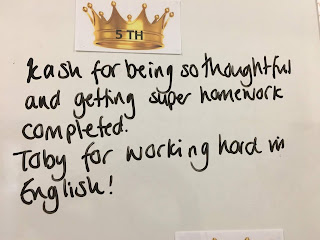 5 TH
Kash for being so thoughtful
and getting super homework
completed.
Toby for working hard in
English!